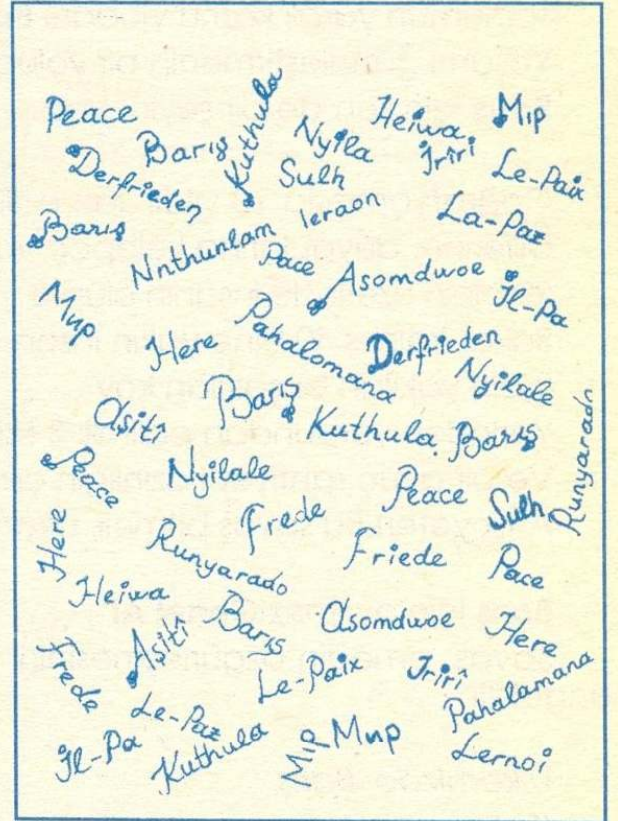 Peace
Barış
Kuthula
Nyila
Heiwa
Mıp
Derfrieden
Sulh
İrîrî
Le-Paix
Barış
Nnthunlam
Ieraon
La-Paz
Pace
Asomdwoe
İl-Pa
Mup
Here
Pahalomana
Derfrieden
Nyilale
Aşitî
Barış
Kuthula
Barış
Runyarado
Peace
Nyilale
Frede
Peace
Sulh
Here
Runyarado
Friede
Pace
Heiwa
Barış
Asomdwoe
Here
Frede
Aşitî
Le-Paix
İrirî
Pahalamana
İl-Pa
Le-Paz
Kuthula
Mıp
Mup
Lernoi